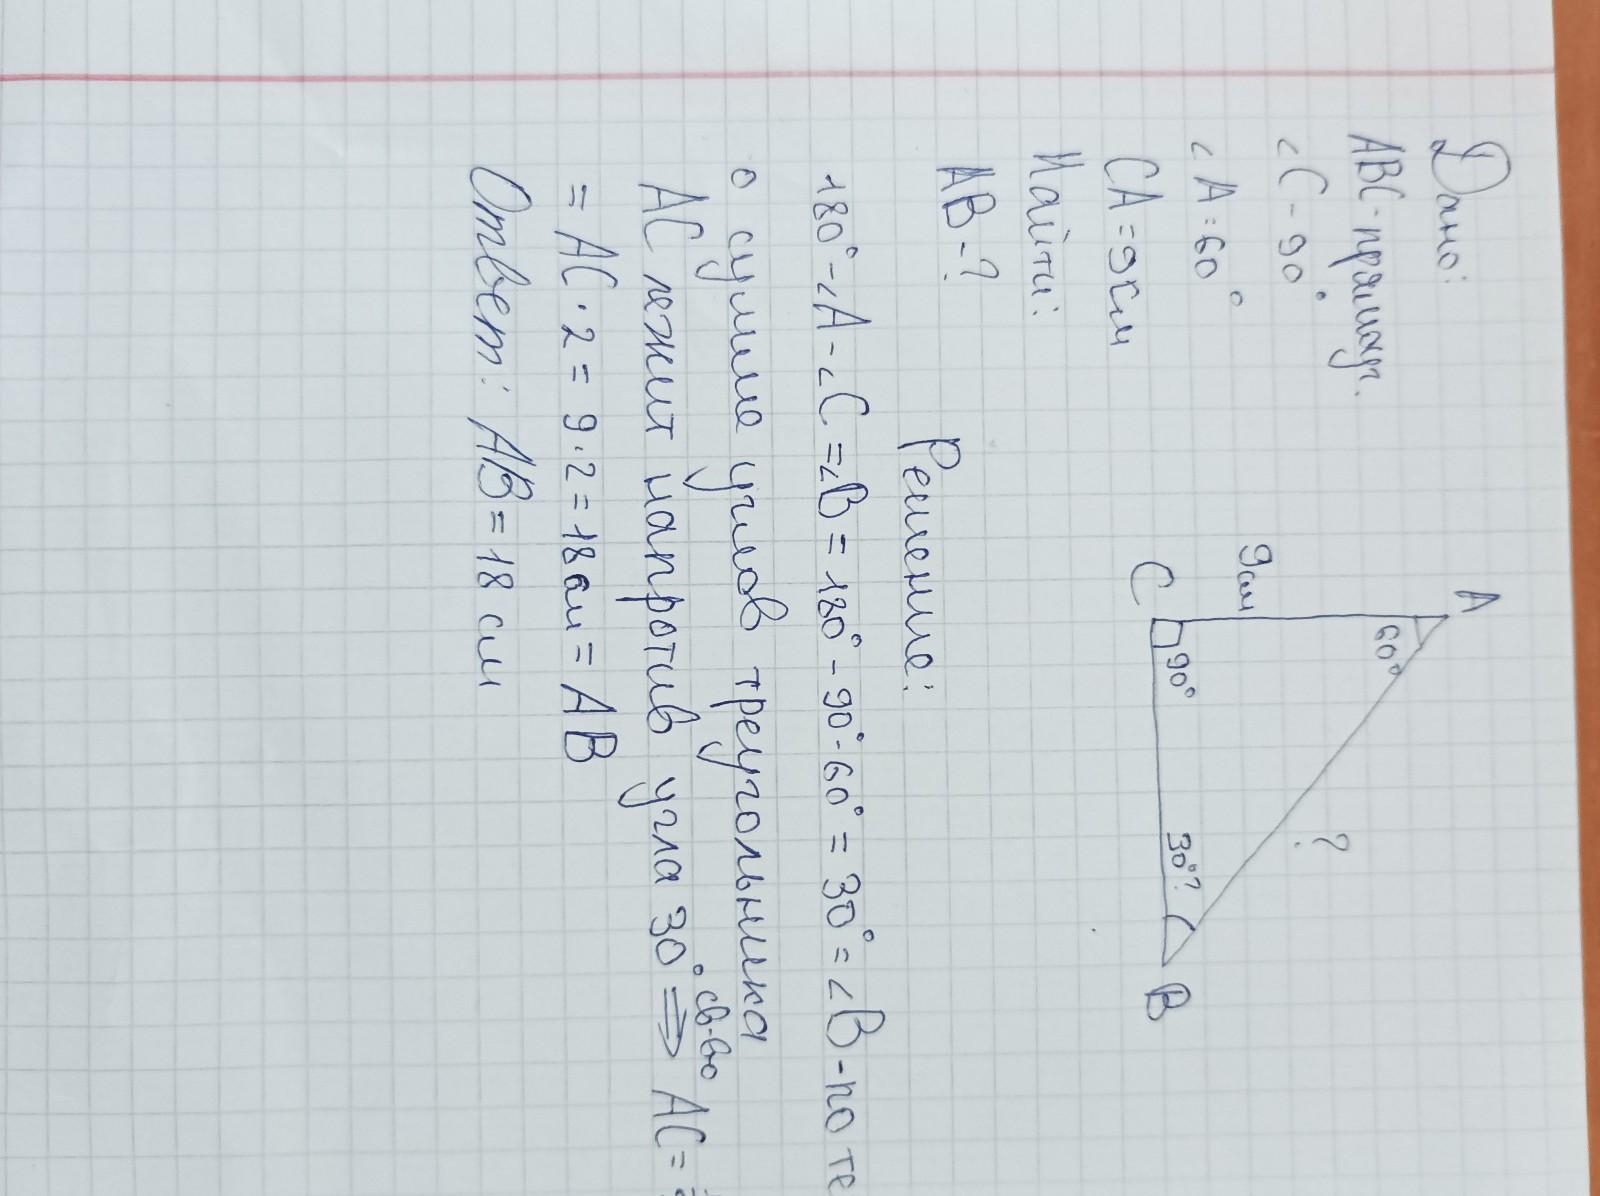 Дано:
ABC - прямоуг.
∠C - 90°
∠A = 60°
CA = 9см
Найти:
AB - ?
A
60°
9см
?
C
90°
30°?
B
Решение:
180° - ∠A - ∠C = ∠B = 180° - 90° - 60° = 30° = ∠B - по те
о сумме углов треугольника
св-во
AC лежит напротив угла 30° ⟹ AC =
= AC · 2 = 9 · 2 = 18см = AB
Ответ: AB = 18 см